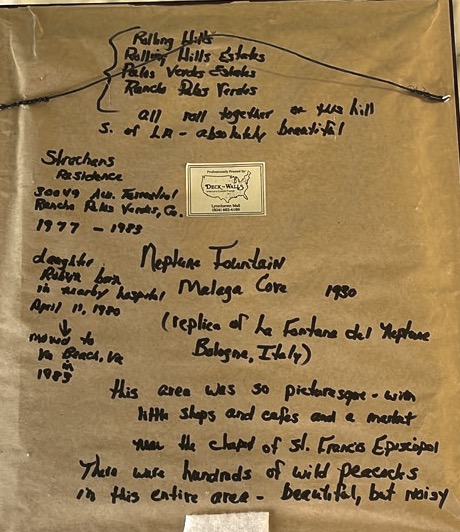 Rolling Hills
Rolling Hills Estates
Palos Verdes Estates
Rancho Palos Verdes
all roll together on this hill
S. of LA - absolutely beautiful
Strachans
Residence
Ave.
Rancho Palos Verdes, Ca.
1977 - 1983
Professionally Framed by
DECK THE WALLS
Lynnhaven Mall
daughter
born
in nearby hospital
April 11, 1980
↓
moved to
Va Beach, Va
in
1983
Neptune Fountain
Malaga Cove 1930
(replica of La Fontana del Neptune
Bologna, Italy)
this area was so picturesque - with
little shops and cafes and a market
near the chapel of St. Francis Episcopal
There were hundreds of wild peacocks
in this entire area - beautiful, but noisy